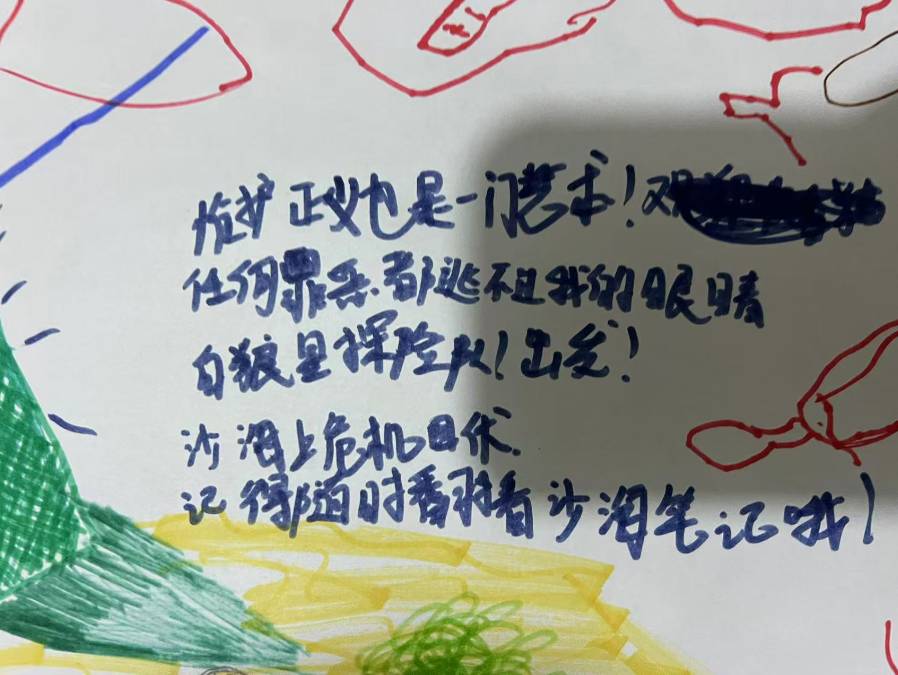 维护正义也是一门艺术！观
任何罪恶都逃不过我的眼睛
白狼星探险队！出发！
沙海上危机四伏
记得随时翻看沙海笔记哦！